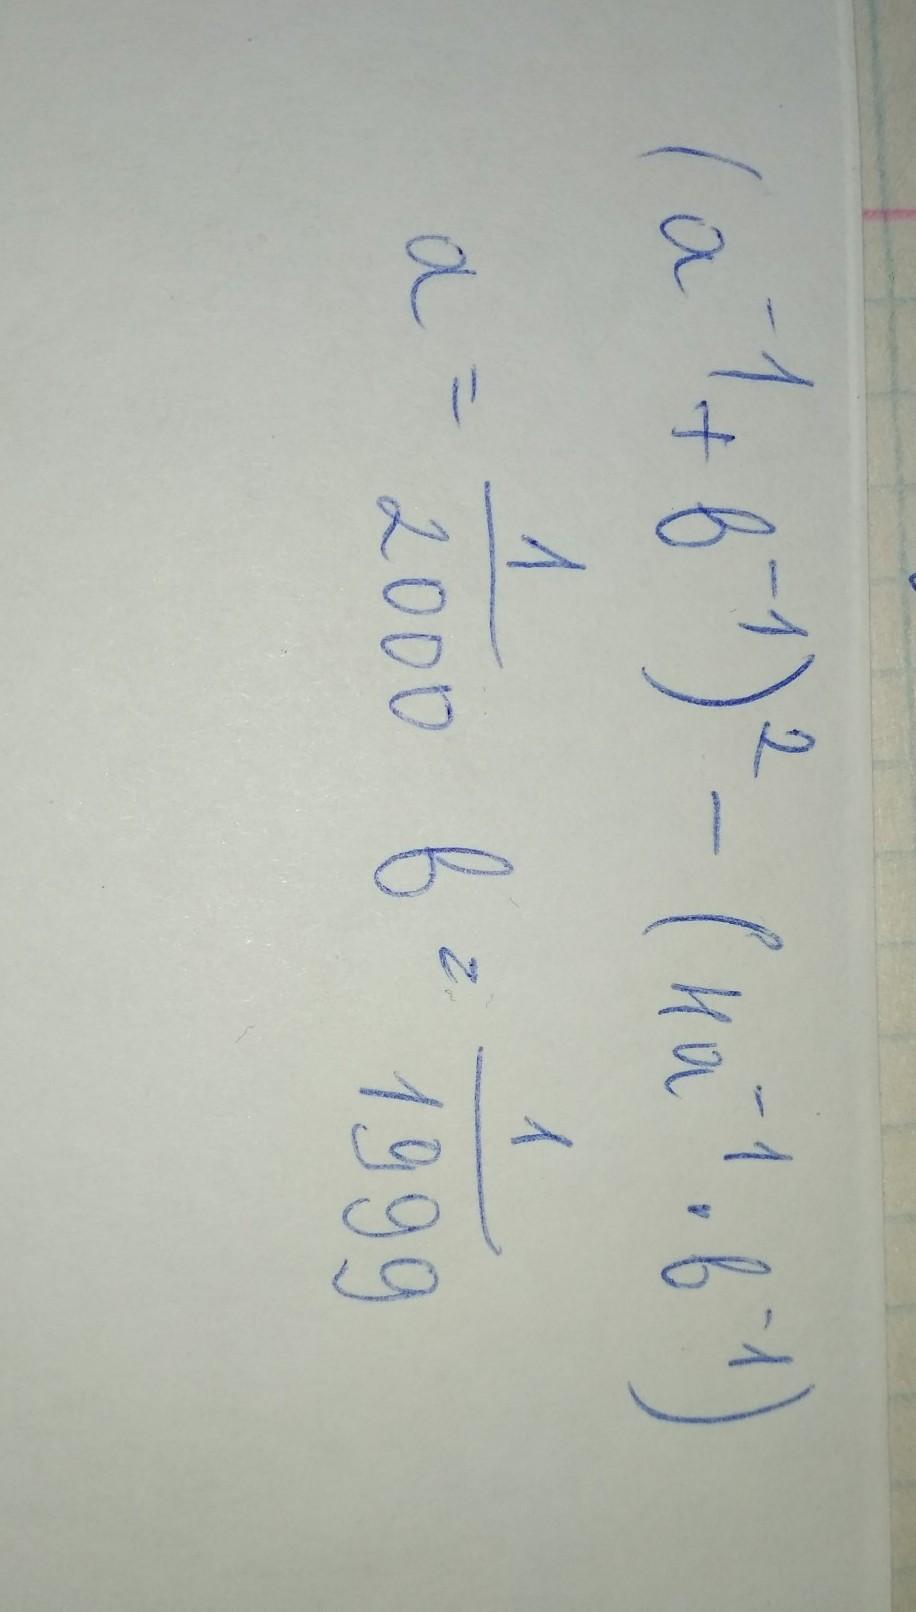 (a⁻¹ + b⁻¹)² - (4a⁻¹ · b⁻¹)
a = 1/2000 b = 1/1999